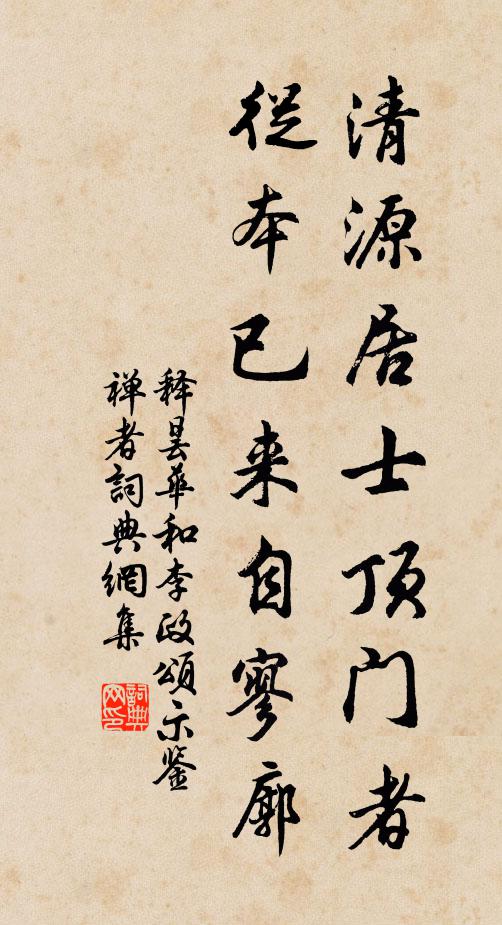 清源居士顶门者
從本已来自寥廓
释昙華和李政頌示鉴
禅者詞典網集
詞典网印